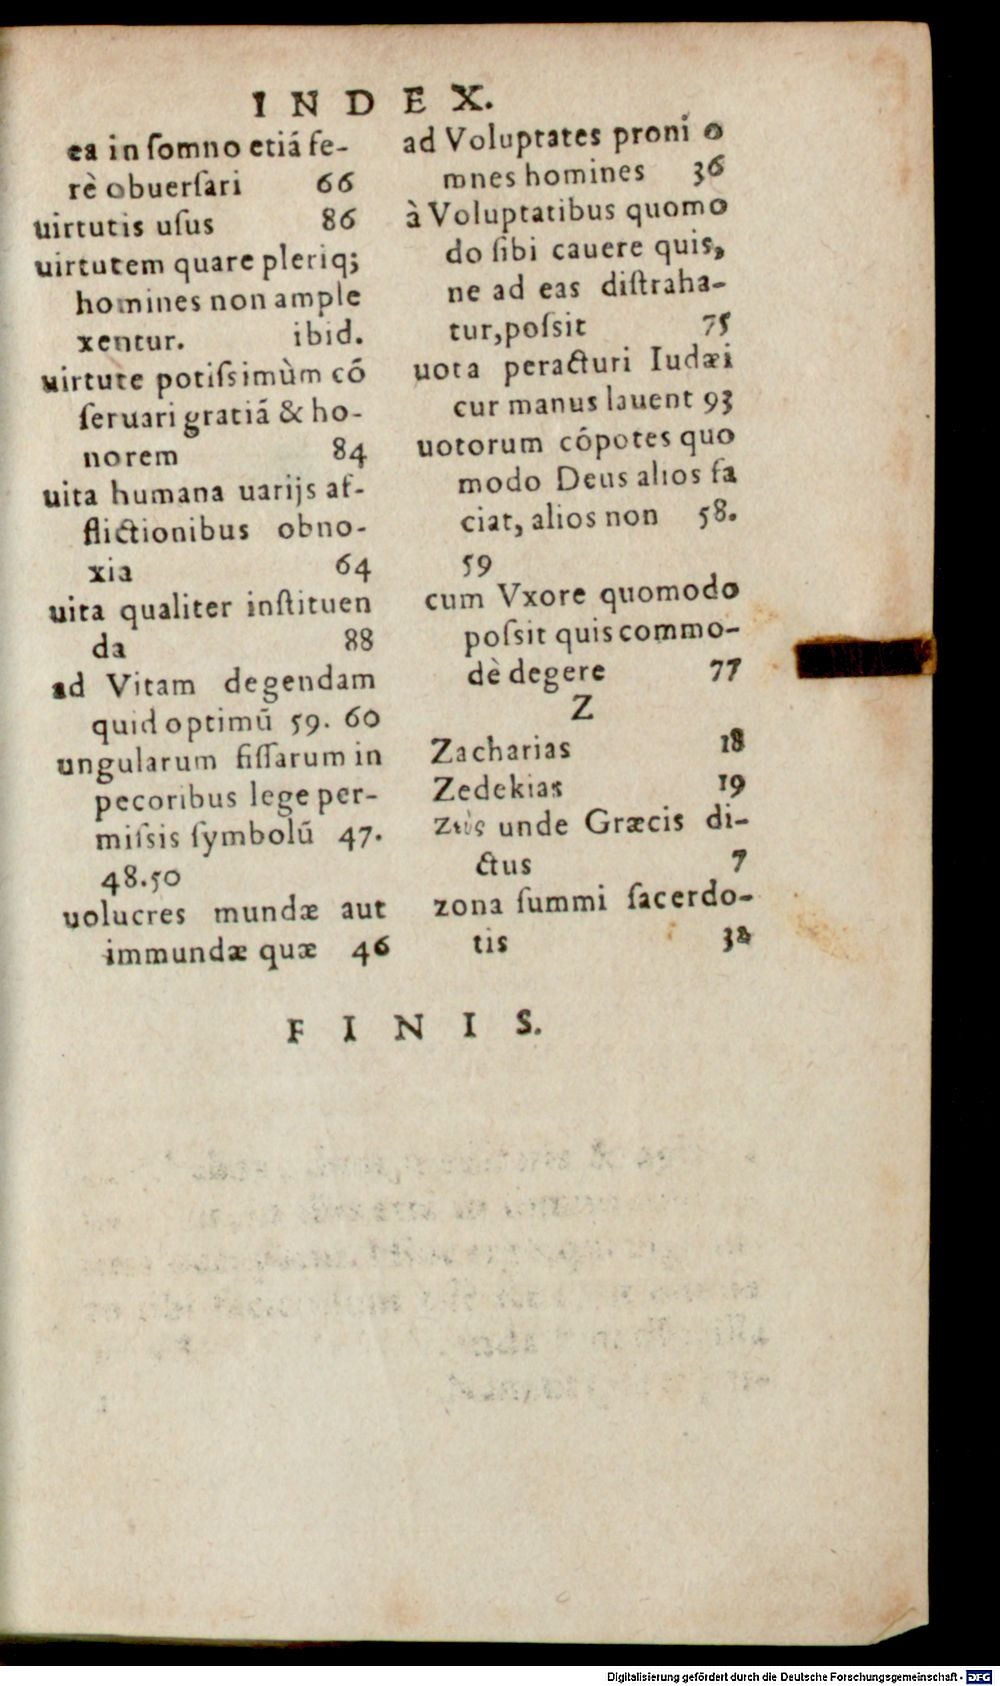 INDEX.
ea in ſomno etiá fe-
rè obuerſari 66
uirtutis uſus 86
uirtutem quare pleriq;
homines non ample
xentur. ibid.
uirtute potiſsimùm cõ
ſeruari gratiã & ho-
norem 84
uita humana uarijs af-
flictionibus obno-
xia 64
uita qualiter inſtituen
da 88
ad Vitam degendam
quid optimũ 59. 60
ungularum fiſſarum in
pecoribus lege per-
miſsis ſymbolũ 47.
48.50
uolucres mundæ aut
immundæ quæ 46
ad Voluptates proni o
mnes homines 36
à Voluptatibus quomo
do ſibi cauere quis,
ne ad eas diſtraha-
tur, poſsit 75
uota peracturi Iudæi
cur manus lauent 93
uotorum cópotes quo
modo Deus alios fa
ciat, alios non 58.
59
cum Vxore quomodo
poſsit quis commo-
dè degere 77
Z
Zacharias 18
Zedekias 19
Ζεὺς unde Græcis di-
ctus 7
zona ſummi ſacerdo-
tis
FINIS.
Digitalisierung gefördert durch die Deutsche Forschungsgemeinschaft - DFG